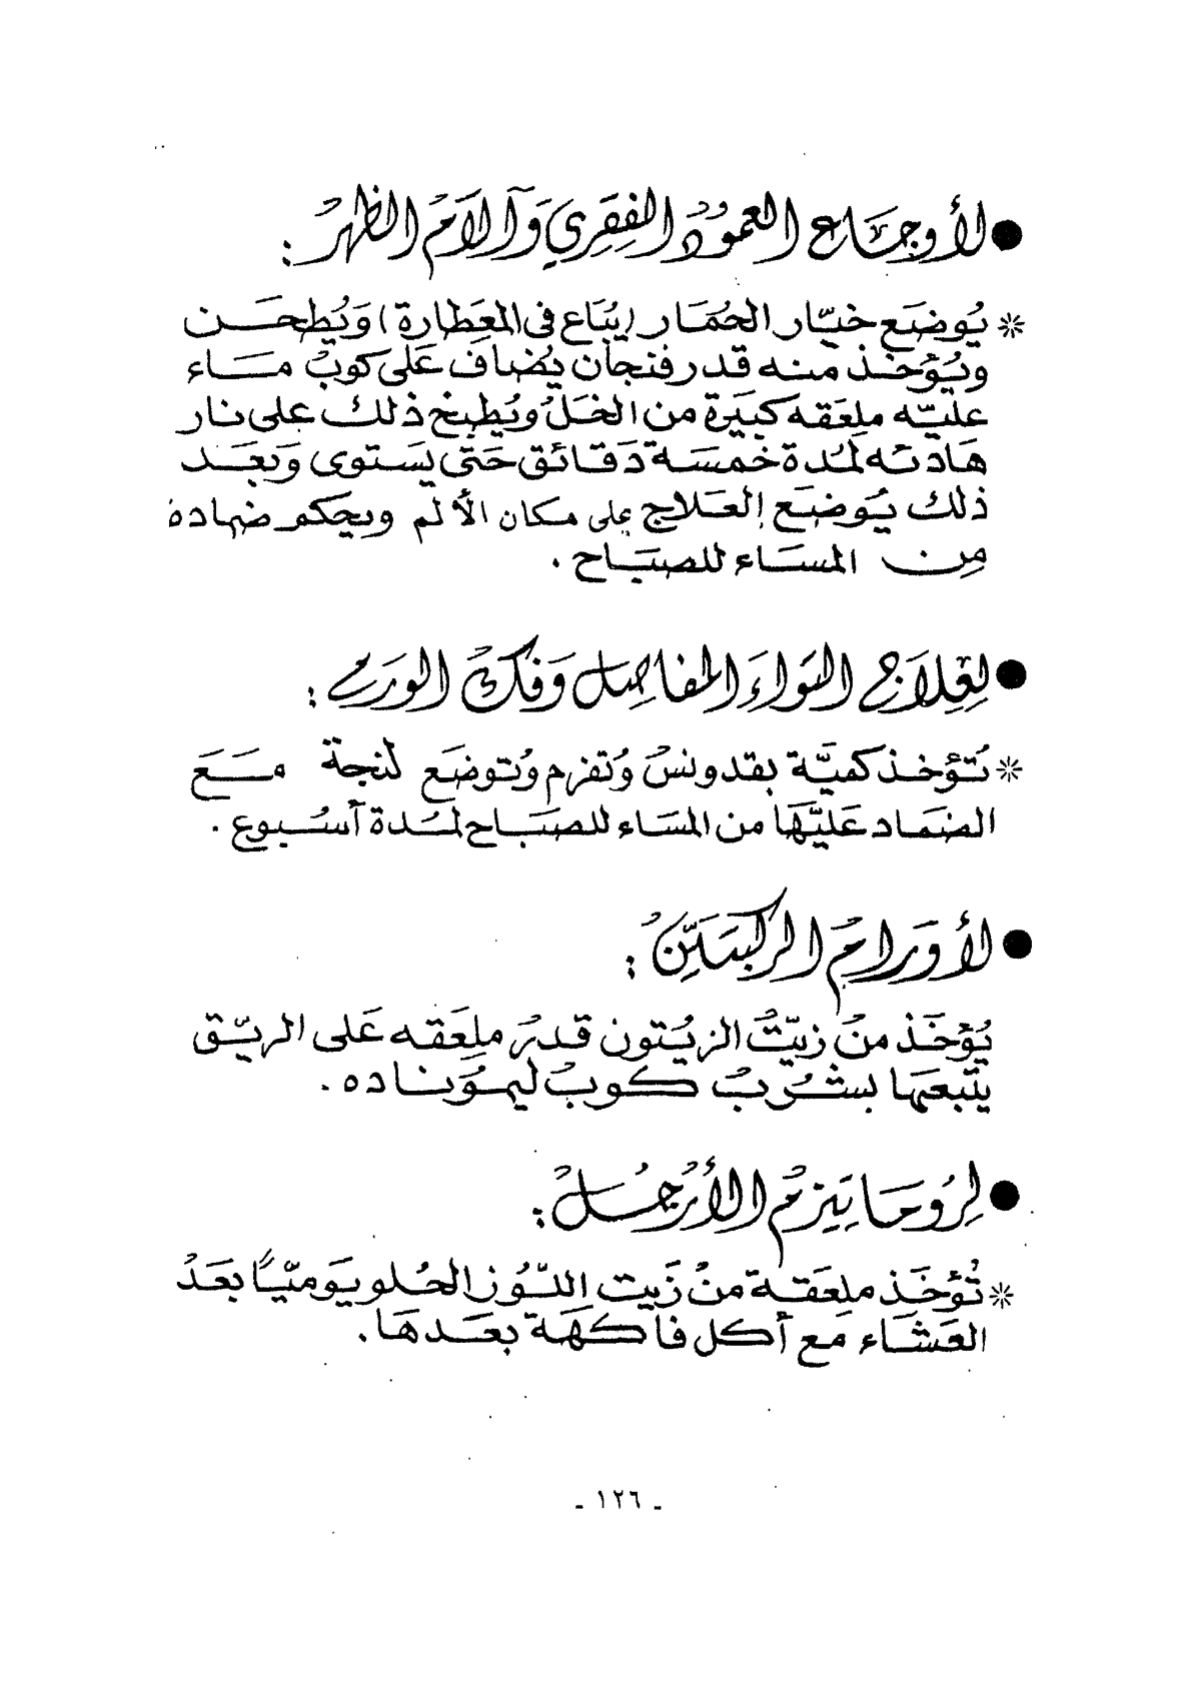 ● لأوجاع العمود الفقري وآلام الظهر :
* يُوضَع خيَّار الحُمَار (يُبَاع فى المعَطارة) وَيُطحَن
ويُؤخَذ منه قدر فنجان يُضاف عَلى كوبُ مَاء
عليّه ملعَقه كبيَرة من الخَلُ ويُطبخ ذلك على نار
هَادئه لمُدة خَمسَة دَقائق حَتى يسَتوى وَبعَد
ذلك يُوضَع العَلاج على مكان الألم ويحكم ضماده
مِن المسَاء للصبَاح .
● لِعِلاَج التوَاءَ المفاصِل وَفكُ الورَم :
* تُؤخذ كميَّة بقدونسُ وَتفرم وُتوضَع لنجة مَعَ
الضمَاد عَليَّهَا من المسَاء للصبَاح لمُدة أسُبوع .
● لأورَام الركبتَيّنُ :
يُؤخَذ منُ زيّتُ الزيُتون قدرُ ملعَقه عَلى الريّق
يتبعهَا بشُربُ كوبُ ليموُناده .
● لِرُومَاتِيزمُ الأرُجُلُ :
* تُؤخَذ ملعَقة منُ زَيت اللّوُز الحُلو يَوميّاً بعَدُ
العَشَاء مَع أكل فاكهَة بعَدهَا .
- ١٢٦ -